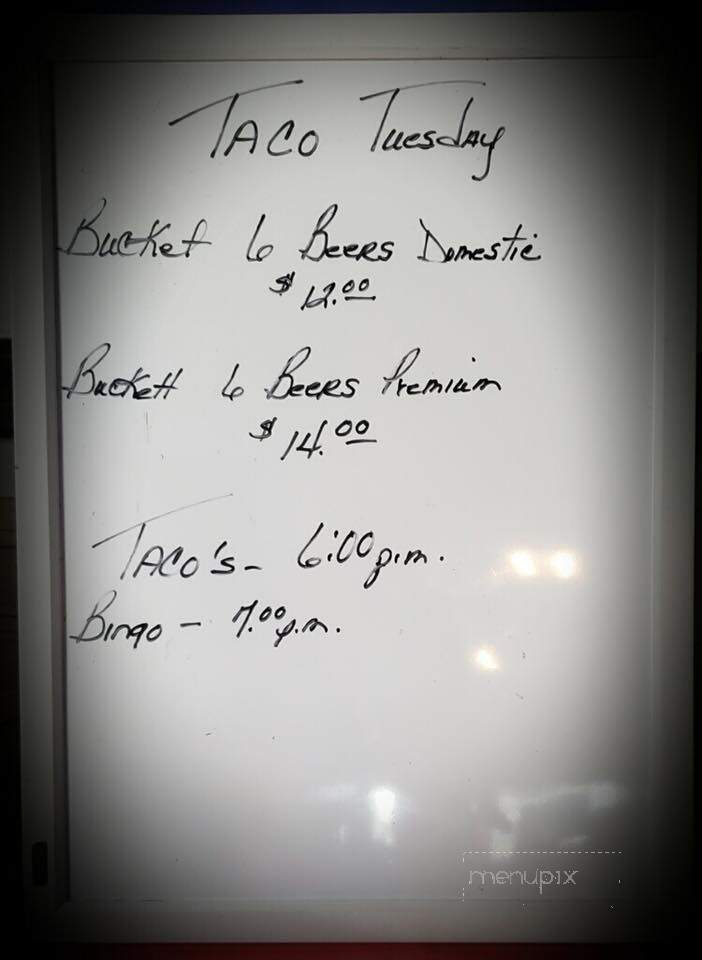 Taco Tuesday
Bucket 6 Beers Domestic
$12.00
Buckett 6 Beers Premium
$14.00
Taco's - 6:00 p.m.
Bingo - 7:00 p.m.
menupix